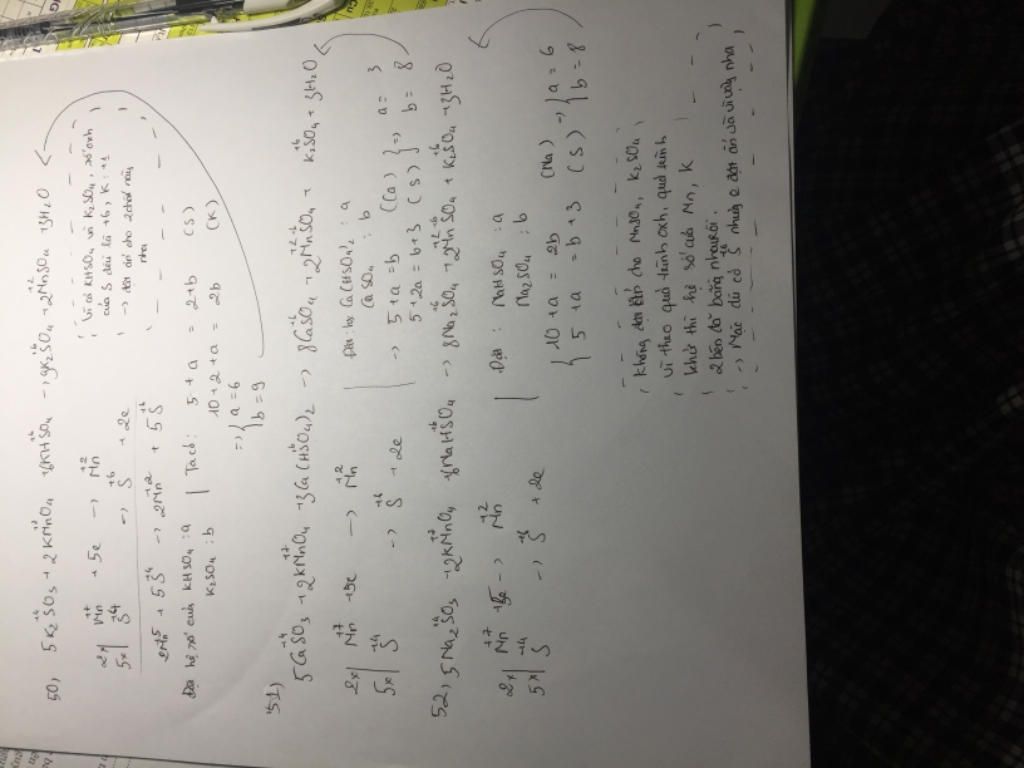 50, 5K₂SO₃ + 2KMnO₄ + 6KHSO₄ → 9K₂SO₄ + 2MnSO₄ + 3H₂O
2x| Mn⁺⁷ + 5e → Mn⁺²
5x| S⁺⁴ → S⁺⁶ + 2e
→ 2Mn⁺² + 5S⁺⁶
Đặt hệ số của KHSO₄ : a
K₂SO₄ : b
Ta có: 5 + a = 2 + b (S)
10 + 2 + a = 2b (K)
=> { a = 6
b = 9
Vì cả KHSO₄ và K₂SO₄, số oxh
của S đều là +6, K : +1
→ đặt ẩn cho 2 chất này
nha
51,
5CaSO₃ + 2KMnO₄ + 3Ca(HSO₄)₂ → 8CaSO₄ + 2MnSO₄ + K₂SO₄ + 3H₂O
2x| Mn⁺⁷ + 5e → Mn⁺²
5x| S⁺⁴ → S⁺⁶ + 2e
Ca(HSO₄)₂ : a
CaSO₄ : b
→ 5 + a = b (Ca)
5 + 2a = b + 3 (S) } => a = 3
b = 8
52, 5Na₂SO₃ + 2KMnO₄ + 6NaHSO₄ → 8Na₂SO₄ + 2MnSO₄ + K₂SO₄ + 3H₂O
2x| Mn⁺⁷ + 5e → Mn⁺²
5x| S⁺⁴ → S⁺⁶ + 2e
Đặt : NaHSO₄ : a
Na₂SO₄ : b
{ 10 + a = 2b (Na)
5 + a = b + 3 (S) => { a = 6
b = 8
Không đặt ẩn cho MnSO₄, K₂SO₄
vì theo quá trình oxh, quá trình
khử thì hệ số của Mn, K
2 bên đã bằng nhau rồi.
→ Mặc dù có S⁺⁶ nhưng e đặt ẩn và vậy nha